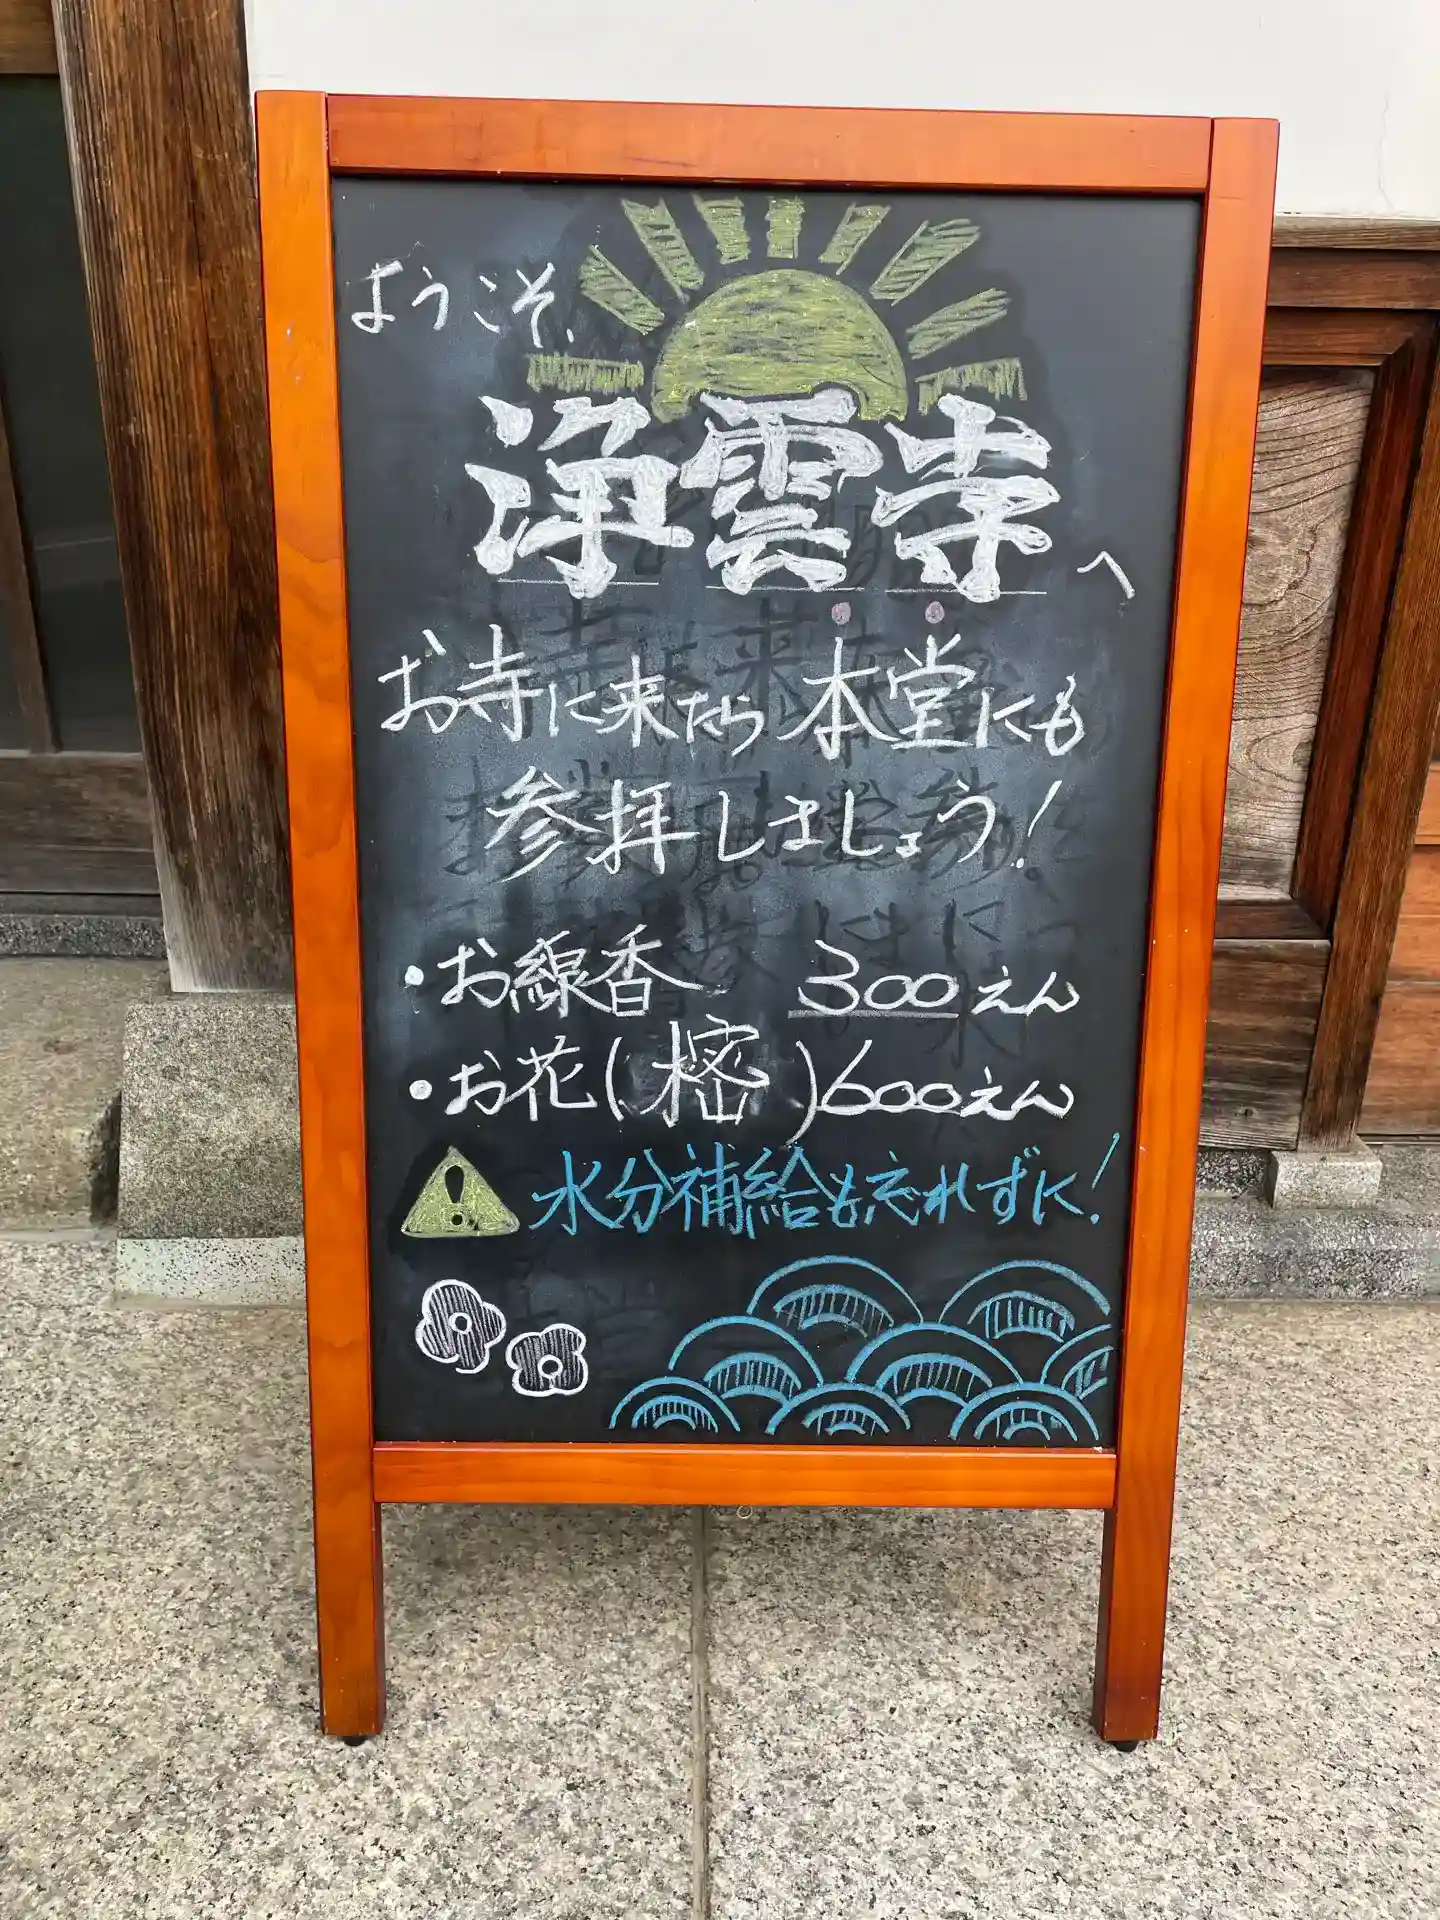 ようこそ、
浄雲寺へ
お寺に来たら本堂にも
参拝しましょう!
・お線香 300えん
・お花(樒)600えん
水分補給も忘れずに!